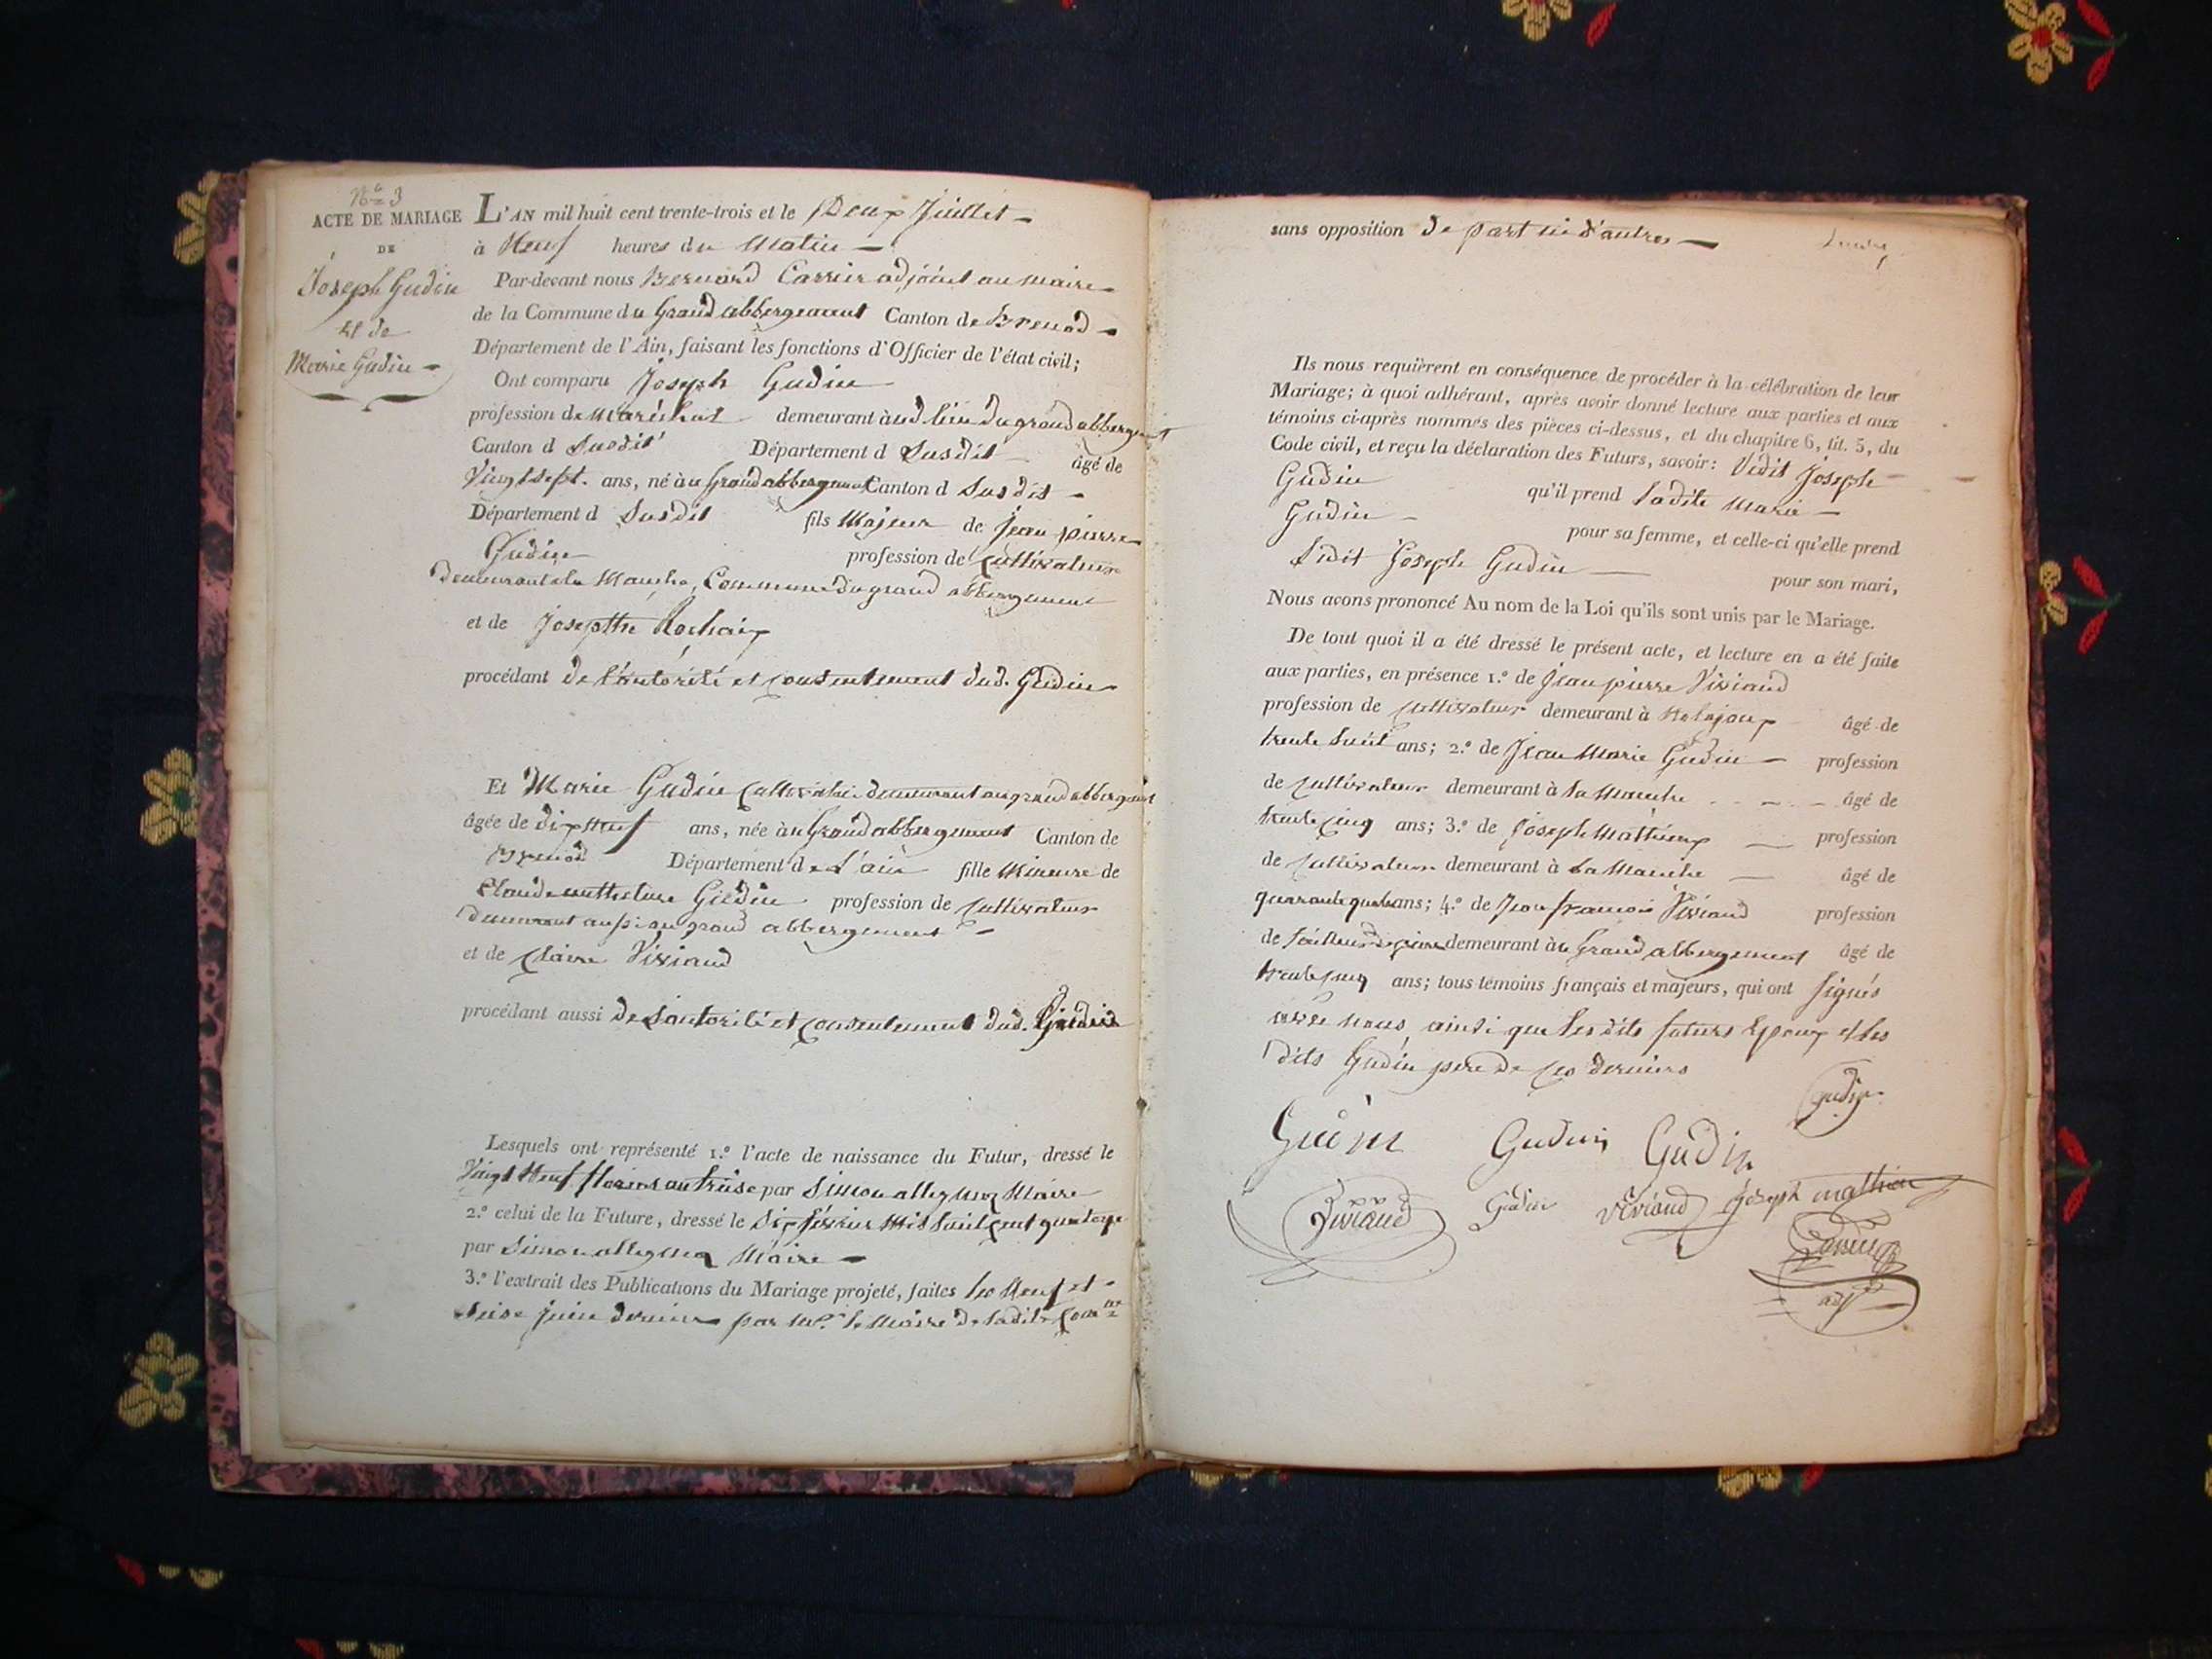 N.o 3
ACTE DE MARIAGE
DE
Joseph Gudin
et de
Marie Gudin
L'AN mil huit cent trente-trois et le Deux Juillet
à Neuf heures du Matin
Par-devant nous Bernard Carrier adjoint au maire
de la Commune du Grand abbergement Canton de Brenod
Département de l'Ain, faisant les fonctions d'Officier de l'état civil;
Ont comparu Joseph Gudin
profession de Maréchal demeurant aud lieu du grand abbergement
Canton d Susdit Département d Susdit âgé de
Vingt sept. ans, né au Grand abbergement Canton d Susdit
Département d Susdit fils Majeur de Jean pierre
Gudin profession de Cultivateur
demeurant à la Manche, Commune du grand abbergement
et de Josephte Rochaix
procédant de l'autorité et consentement dud. Gudin
Et Marie Gudin Cultivatrice demeurant au grand abbergement
âgée de dix Neuf ans, née au Grand abbergement Canton de
Brenod Département de L'ain fille Mineure de
Claude Gudin profession de Cultivateur
demeurant aussi au grand abbergement
et de Claire Viviand
procédant aussi de L'autorité et consentement dud. Gudin
Lesquels ont représenté 1.o l'acte de naissance du Futur, dressé le
Vingt Neuf floréal an treise par Simon Maire
2.o celui de la Future, dressé le dix février Mil huit Cent quatorze
par Simon Maire
3.o l'extrait des Publications du Mariage projeté, faites les Neuf et
Seise Juin dernier par Mr. le Maire de ladite Comne
sans opposition de part ni d'autres
Ils nous requièrent en conséquence de procéder à la célébration de leur
Mariage; à quoi adhérant, après avoir donné lecture aux parties et aux
témoins ci-après nommés des pièces ci-dessus, et du chapitre 6, tit. 5, du
Code civil, et reçu la déclaration des Futurs, savoir: Ledit Joseph
Gudin qu'il prend Ladite Marie
Gudin pour sa femme, et celle-ci qu'elle prend
Ledit Joseph Gudin pour son mari,
Nous avons prononcé Au nom de la Loi qu'ils sont unis par le Mariage.
De tout quoi il a été dressé le présent acte, et lecture en a été faite
aux parties, en présence 1.o de Jean pierre Viviand
profession de Cultivateur demeurant à âgé de
trente huit ans; 2.o de Jean Marie Gudin profession
de Cultivateur demeurant à La Manche âgé de
trente cinq ans; 3.o de Joseph Mathieux profession
de Cultivateur demeurant à La Manche âgé de
quarante quatre ans; 4.o de Jean francois Viviand profession
de tailleur de pierre demeurant au Grand abbergement âgé de
trente cinq ans; tous témoins français et majeurs, qui ont signés
avec nous, ainsi que les dits futurs Epoux et les
dits Gudin pere de ces derniers
Gudin
Gudin Gudin Gudin
Viviand Gudin Viviand Joseph mathieu
Carrier
adjt